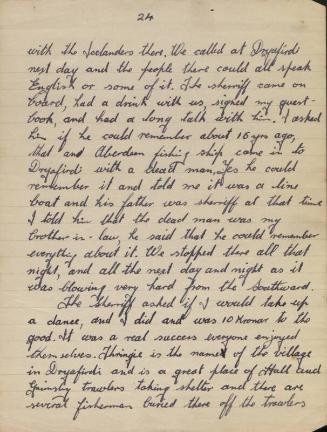 24
with the Icelanders there. We called at Dryafirdi
next day and the people there could all speak
English or some of it. The sherriff came on
board, had a drink with us, signed my guest-
book, and had a long talk with him. I asked
him if he could remember about 16 yrs ago,
that and Aberdeen fishing ship came in to
Dryafirdi with a dead man, Yes he could
remember it and told me it was a line
boat and his father was sherriff at that time
I told him that the dead man was my
brother-in-law, he said that he could remember
everything about it. We stopped there all that
night, and all the next day and night as it
was blowing very hard from the Southward.
The Sherriff asked if I would take up
a dance, and I did and was 10 Kronar to the
good. It was a real success everyone enjoyed
themselves. Thringie is the name of the village
in Dryafirdi and is a great place of Hull and
Grimsby trawlers taking shelter and there are
several fisherman buried there off the trawlers